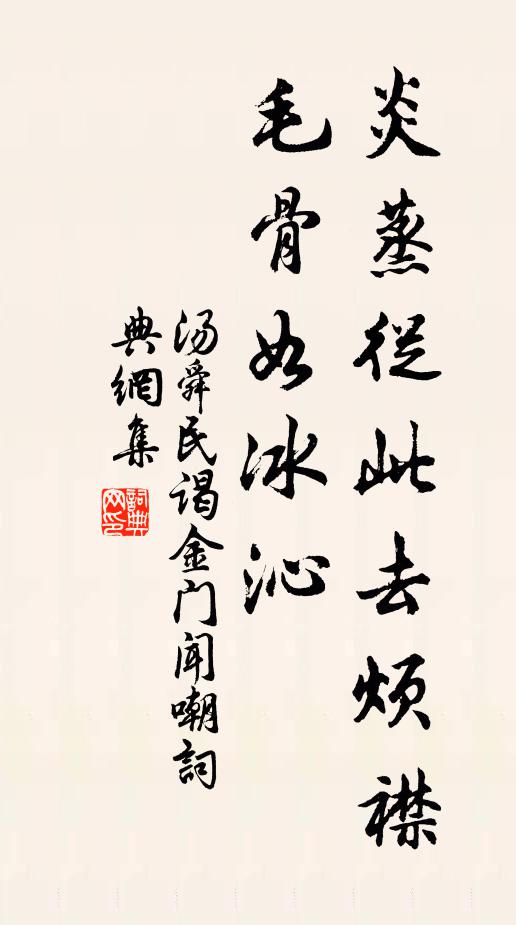 炎蒸從此去烦襟
毛骨如冰沁
汤舜民谒金门闻嘲詞
典網集
詞典
网印